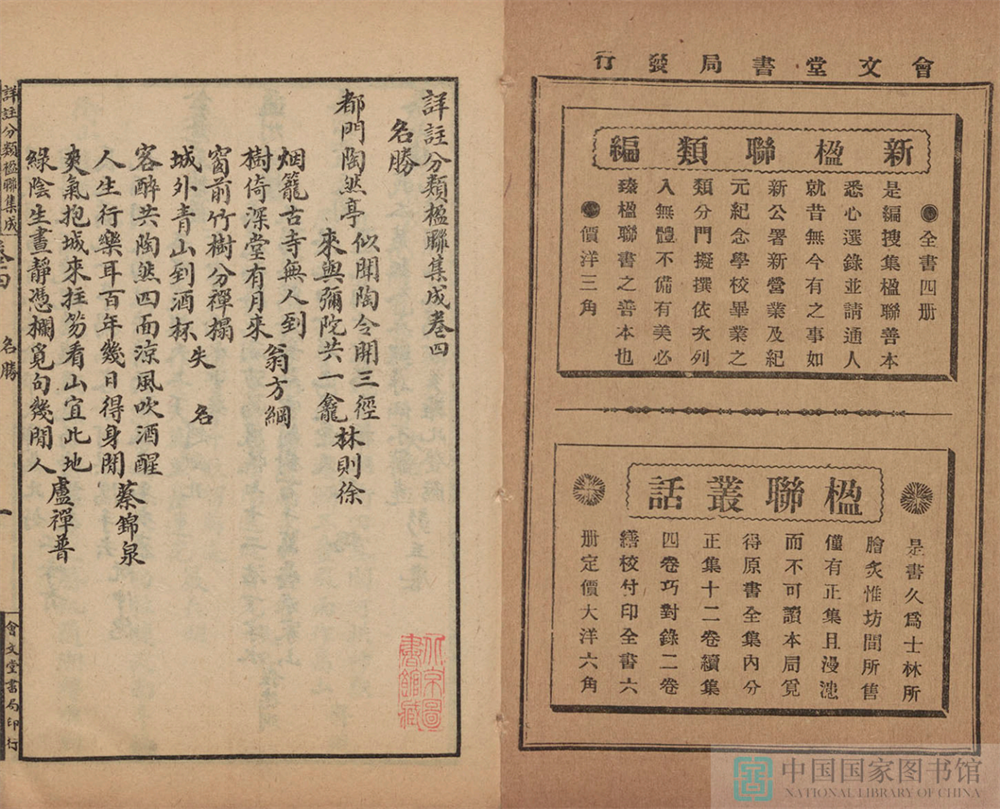 會文堂書局發行
新楹聯類編
全書四册
是編搜集楹聯善本
悉心選錄並請通人
就昔無今有之事如
新公署新營業及紀
元紀念學校畢業之
類分門擬撰依次列
入無體不備有美必
臻楹聯書之善本也
價洋三角
楹聯叢話
是書久爲士林所
膾炙惟坊間所售
僅有正集且漫漶
而不可讀本局覓
得原書全集內分
正集十二卷續集
四卷巧對錄二卷
繕校付印全書六
册定價大洋六角
詳註分類楹聯集成卷四
名勝
都門陶然亭
似聞陶令開三徑
來與彌陀共一龕 林則徐
烟籠古寺無人到
樹倚深堂有月來 翁方綱
窗前竹樹分禪榻
城外青山到酒杯 失名
客醉共陶然四面涼風吹酒醒
人生行樂耳百年幾日得身閒 蔡錦泉
爽氣抱城來拄笏看山宜此地
綠陰生晝靜憑欄覓句幾閒人 盧禪普
詳註分類楹聯集成 卷四 名勝 一 會文堂書局印行
北京圖
書館藏
中国国家图书馆
NATIONAL LIBRARY OF CHINA